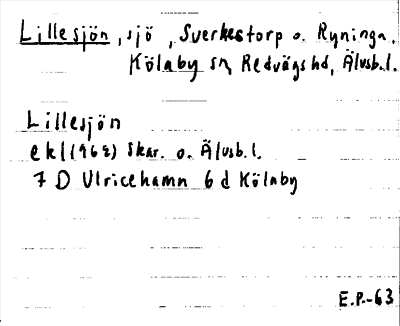 Lillesjön, sjö, Sverkestorp o. Ryninga,
Kölaby sn, Redvägs hd, Älvsb. l.
Lillesjön
ekl (1962) Skar. o. Älvsb. l.
7 D Ulricehamn 6 d Kölaby
E.P.-63